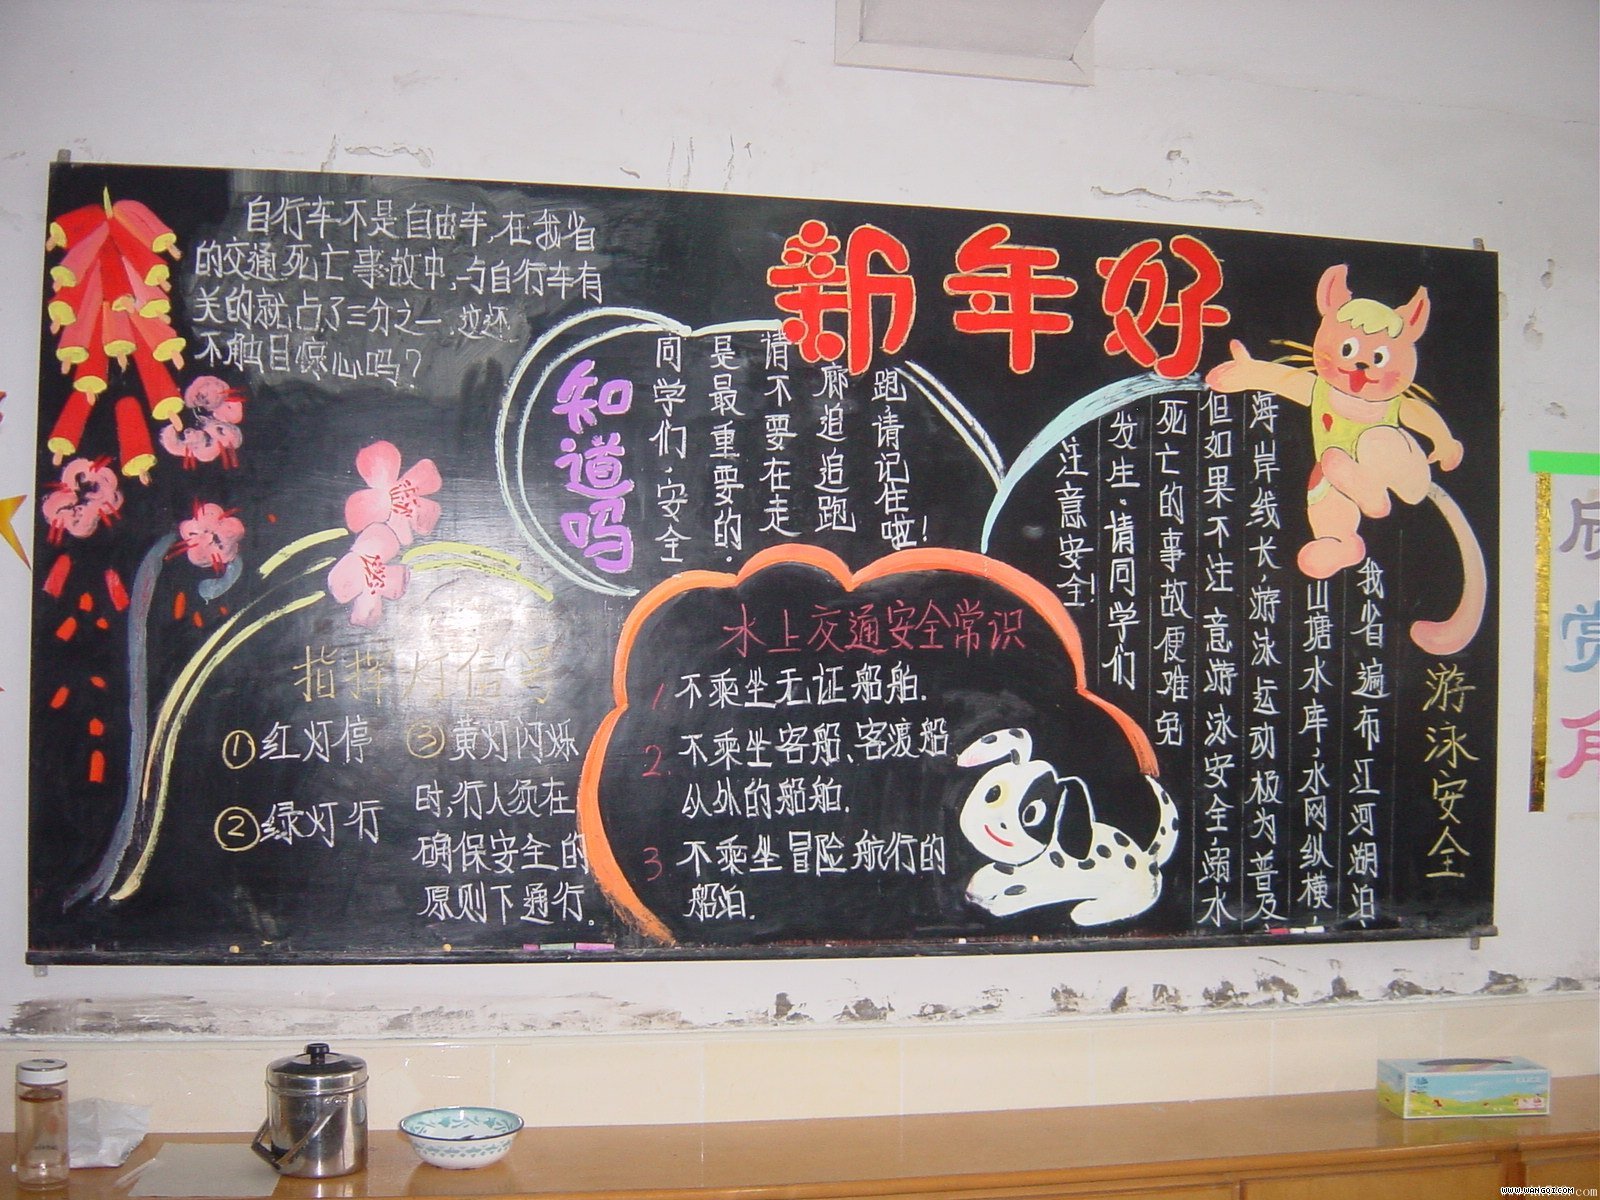 新年好
自行车不是自由车,在我省
的交通死亡事故中,与自行车有
关的就占了三分之一.这还
不触目惊心吗?
知道吗
同学们,安全
是最重要的.
请不要在走
廊追追跑
跑请记住啦!
游泳安全
我省遍布江河湖泊,
山塘水库,水网纵横,
海岸线长,游泳运动极为普及,
但如果不注意游泳安全,溺水
死亡的事故便难免
发生.请同学们
注意安全!
指挥灯信号
①红灯停
②绿灯行
③黄灯闪烁
时,行人须在
确保安全的
原则下通行.
水上交通安全常识
1 不乘坐无证船舶.
2. 不乘坐客船、客渡船
以外的船舶.
3 不乘坐冒险航行的
船泊.
欣
赏
角
WWW.WANGQI.COM